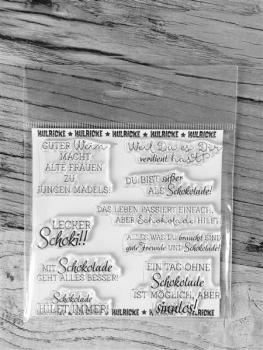 HULRICKE ★ HULRICKE ★ HULRICKE ★ HULRICKE ★ HULRICKE
GUTER Wein
MACHT
ALTE FRAUEN
ZU
JUNGEN MÄDELS!
Weil Du es Dir
verdient hast!
DU BIST süßer
ALS Schokolade!
DAS LEBEN PASSIERT EINFACH,
ABER Schokolade HILFT.
LECKER
Schoki!!
ALLES WAS DU brauchst SIND
gute Freunde UND Schokolade!
MIT Schokolade
GEHT ALLES BESSER!
EIN TAG OHNE
Schokolade
IST MÖGLICH, ABER
sinnlos!
Schokolade
HILFT IMMER!
HULRICKE ★ HULRICKE